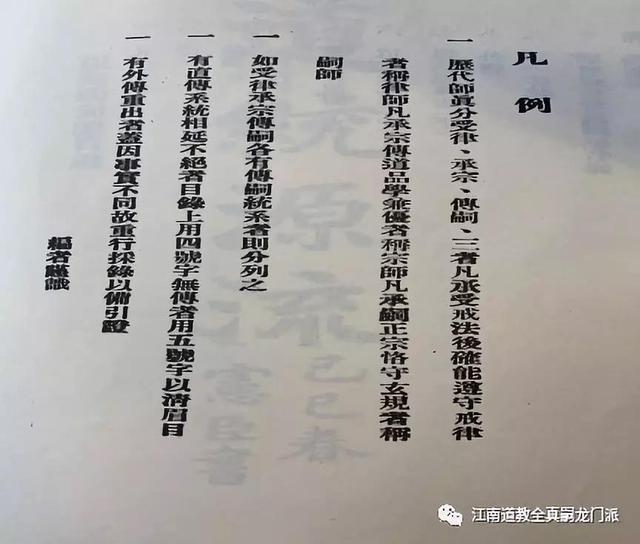 凡例
一 歷代師眞分受律、承宗、傳嗣、三者凡承受戒法後確能遵守戒律
者稱律師凡承宗傳道品學兼優者稱宗師凡承嗣正宗恪守玄規者稱
嗣師
一 如受律承宗傳嗣各有傳嗣統系者則分列之
一 有直傳系統相延不絕者目錄上用四號字無傳者用五號字以清眉目
一 有外傳重出者蓋因事實不同故重行採錄以備引證
編者謹識
源流
己巳春
憲臣書
江南道教全真嗣龙门派